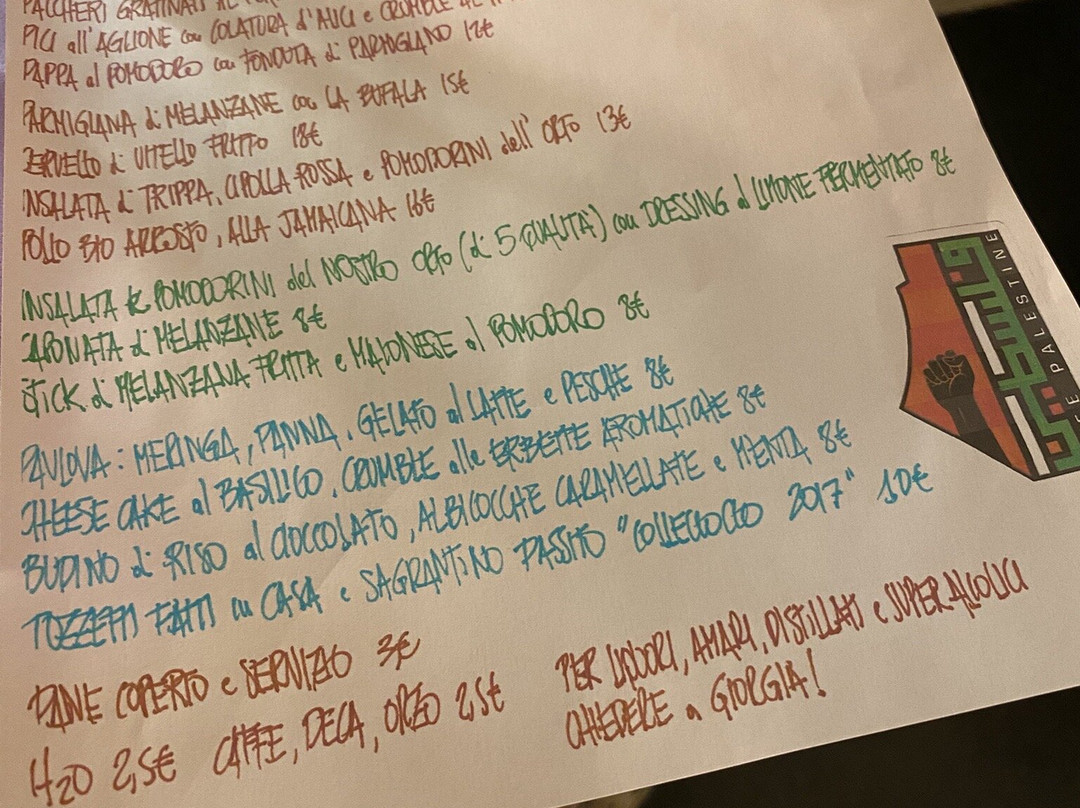 PACCHERI GRATINATI AL
PICI all'AGLIONE con COLATURA d'ALICI e CRUMBLE AL
PAPPA al POMODORO con FONDUTA di PARMIGIANO 12€
PARMIGIANA di MELANZANE con LA BUFALA 15€
CERVELLO di VITELLO FRITTO 18€
INSALATA di TRIPPA, CIPOLLA ROSSA e POMODORINI dell'ORTO 13€
POLLO BIO ARROSTO, ALLA JAMAICANA 16€
INSALATA di POMODORINI del NOSTRO ORTO (di 5 QUALITÀ) con DRESSING al LIMONE FERMENTATO 8€
CAPONATA di MELANZANE 8€
STICK di MELANZANA FRITTA e MAIONESE al POMODORO 8€
PAVLOVA: MERINGA, PANNA, GELATO al LATTE e PESCHE 8€
CHEESE CAKE al BASILICO, CRUMBLE alle ERBETTE AROMATICHE 8€
BUDINO di RISO al CIOCCOLATO, ALBICOCCHE CARAMELLATE e MENTA 8€
TOZZETTI FATTI in CASA e SAGRANTINO PASSITO "COLLECIOCCO 2017" 10€
PANE COPERTO e SERVIZIO 3€
H2O 2,5€ CAFFE, DECA, ORZO 2,5€
PER LIQUORI, AMARI, DISTILLATI e SUPER ALCOLICI
CHIEDERE a GIORGIA!
PALESTINE